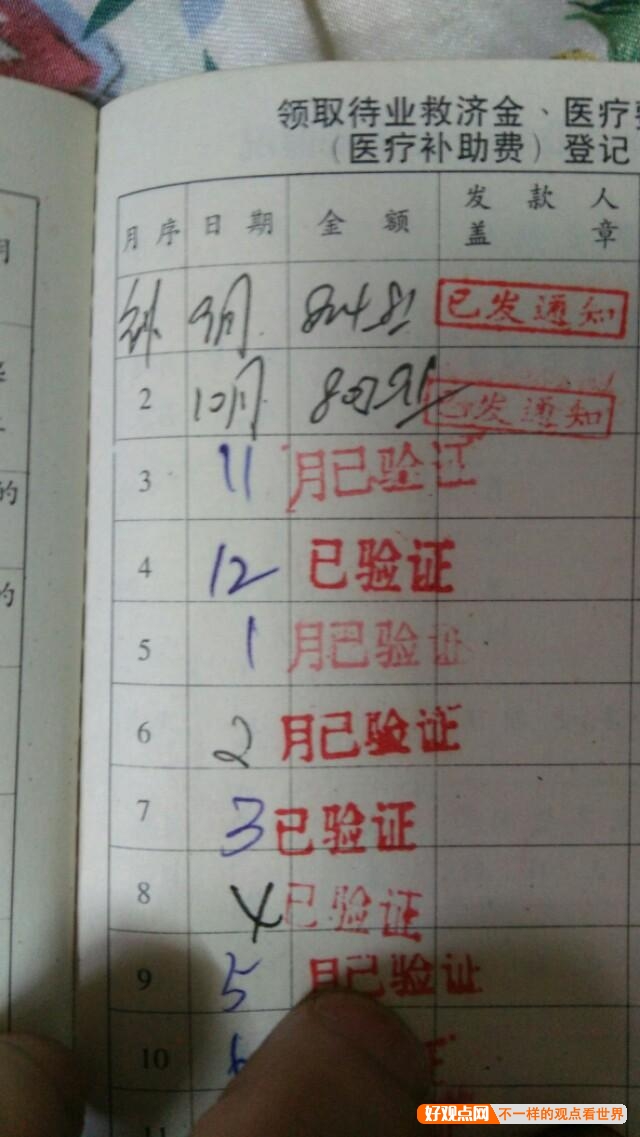 领取待业救济金、医疗
（医疗补助费）登记
月序 日期 金额 发款人盖章
9月 804.81 已发通知
2 10月 已发通知
3 11 月已验证
4 12 已验证
5 1 月已验证
6 2 月已验证
7 3 已验证
8 4 已验证
9 5 月已验证
10
11
的
的
好观点网 不一样的观点看世界